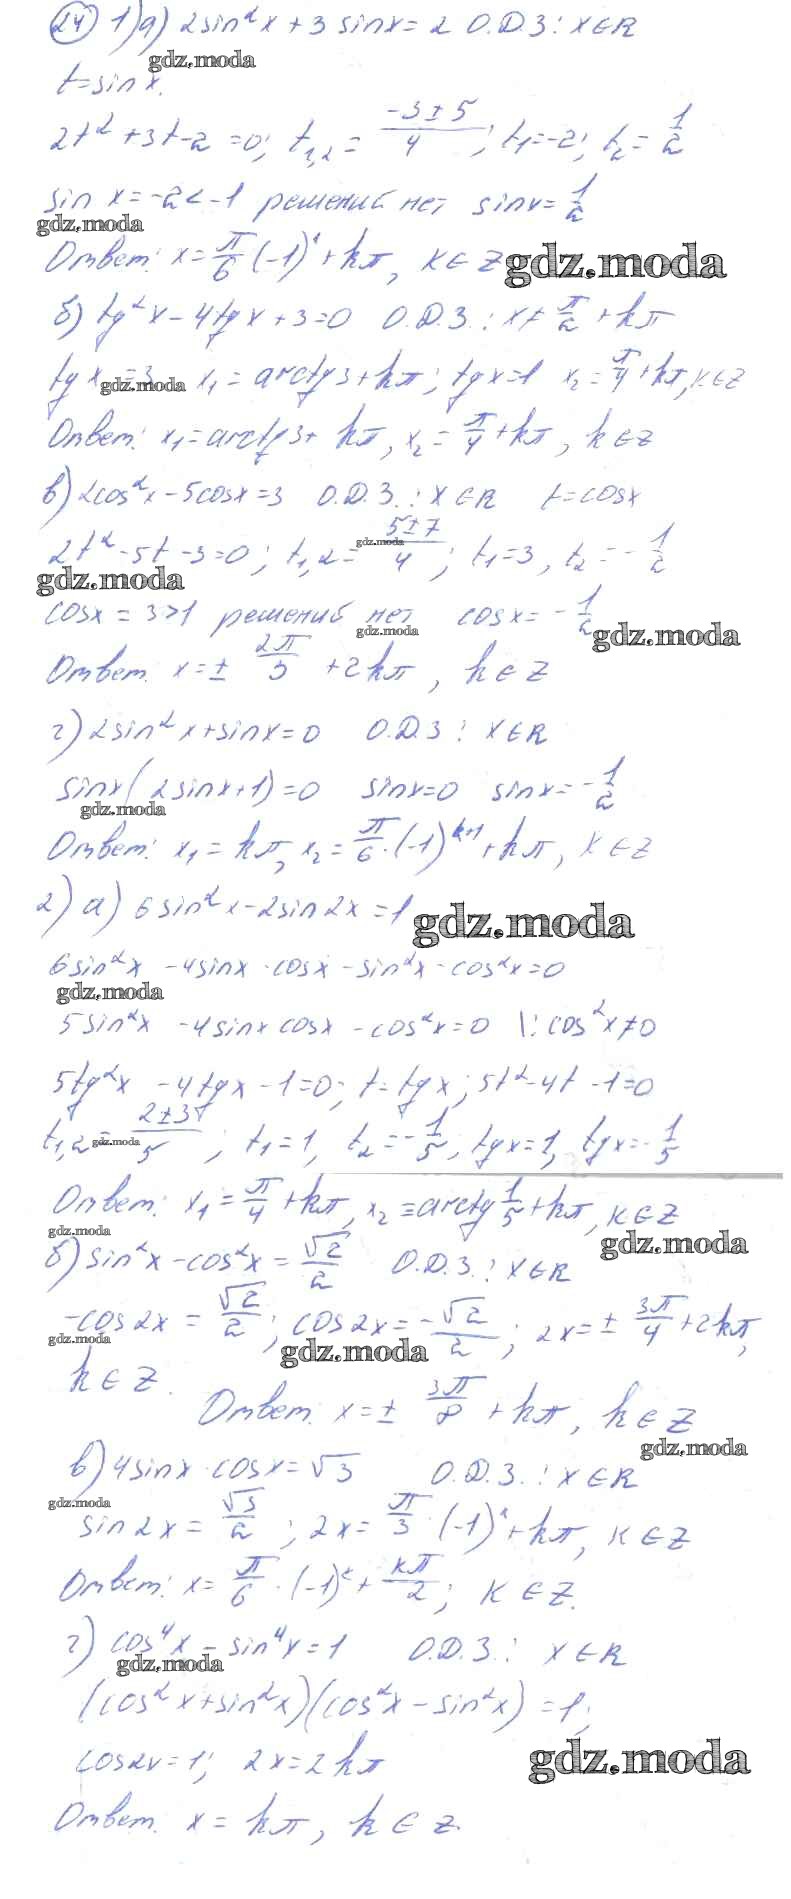 24 1) а) 2sin²x + 3 sinx = 2 О.Д.З: x∈R
gdz.moda
t = sin x.
2t² + 3t - 2 = 0; t₁,₂ = (-3 ± 5)/4; t₁ = -2; t₂ = 1/2
sin x = -2 < -1 решений нет sinx = 1/2
gdz.moda
Ответ: x = π/6 (-1)ᵏ + kπ, k∈Z gdz.moda
б) tg²x - 4tgx + 3 = 0 О.Д.З.: x ≠ π/2 + kπ
tgx = 3 x₁ = arctg3 + kπ; tgx = 1 x₂ = π/4 + kπ, k∈Z
gdz.moda
Ответ: x₁ = arctg3 + kπ, x₂ = π/4 + kπ, k∈Z
в) 2cos²x - 5cosx = 3 О.Д.З.: x∈R t = cosx
2t² - 5t - 3 = 0; t₁,₂ = (5 ± 7)/4; t₁ = 3, t₂ = -1/2
gdz.moda gdz.moda
cosx = 3 > 1 решений нет cosx = -1/2
gdz.moda gdz.moda
Ответ: x = ± 2π/3 + 2kπ, k∈Z
г) 2sin²x + sinx = 0 О.Д.З: x∈R
sinx(2sinx + 1) = 0 sinx = 0 sinx = -1/2
gdz.moda
Ответ: x₁ = kπ, x₂ = π/6·(-1)ᵏ⁺¹ + kπ, k∈Z
2) а) 6sin²x - 2sin2x = 1 gdz.moda
6sin²x - 4sinx·cosx - sin²x - cos²x = 0
gdz.moda
5sin²x - 4sinx cosx - cos²x = 0 \: cos²x ≠ 0
5tg²x - 4tgx - 1 = 0; t = tgx; 5t² - 4t - 1 = 0
t₁,₂ = (2 ± 3)/5; t₁ = 1, t₂ = -1/5; tgx = 1, tgx = -1/5
gdz.moda
Ответ: x₁ = π/4 + kπ, x₂ = arctg 1/5 + kπ, k∈Z
gdz.moda
б) sin²x - cos²x = √2/2 О.Д.З.: x∈R gdz.moda
-cos2x = √2/2; cos2x = -√2/2; 2x = ± 3π/4 + 2kπ,
gdz.moda gdz.moda
k∈Z.
Ответ: x = ± 3π/8 + kπ, k∈Z
gdz.moda
в) 4sinx·cosx = √3 О.Д.З.: x∈R
gdz.moda
sin2x = √3/2; 2x = π/3·(-1)ᵏ + kπ, k∈Z
Ответ: x = π/6·(-1)ᵏ + kπ/2; k∈Z.
г) cos⁴x - sin⁴x = 1 О.Д.З.: x∈R
gdz.moda
(cos²x + sin²x)(cos²x - sin²x) = 1;
cos2x = 1; 2x = 2kπ gdz.moda
Ответ: x = kπ, k∈Z.